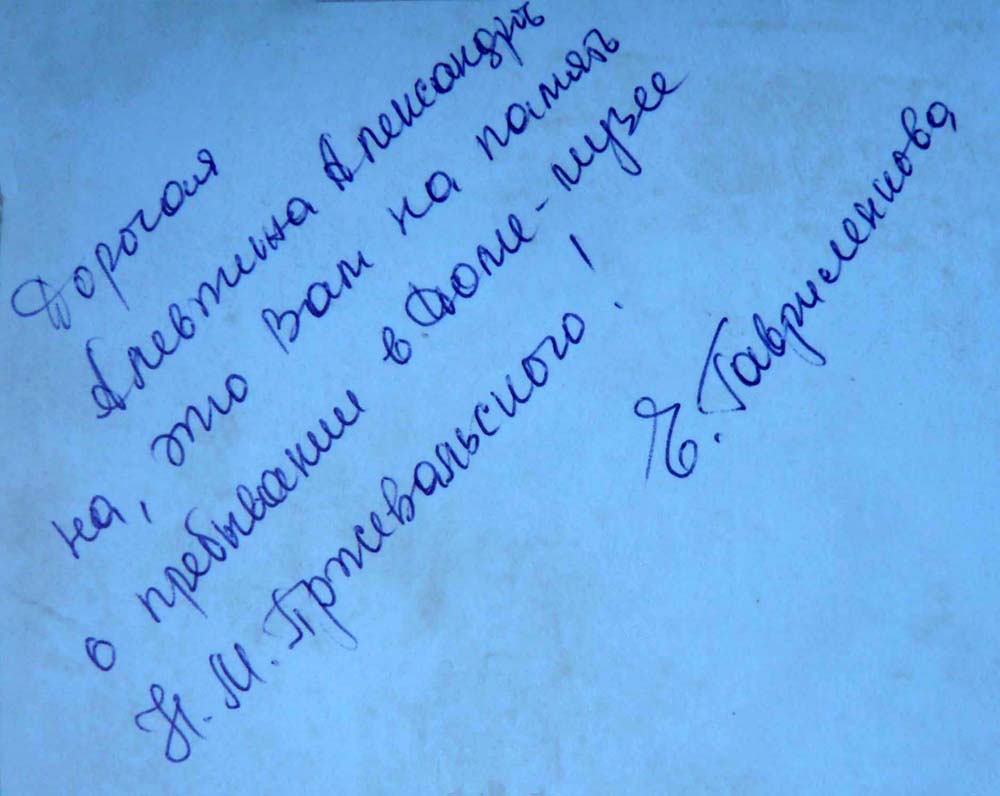 Дорогая
Алевтина Александров
на, это Вам на память
о пребывании в Доме-музее
Н.М. Пржевальского!
Е. Гавриленкова